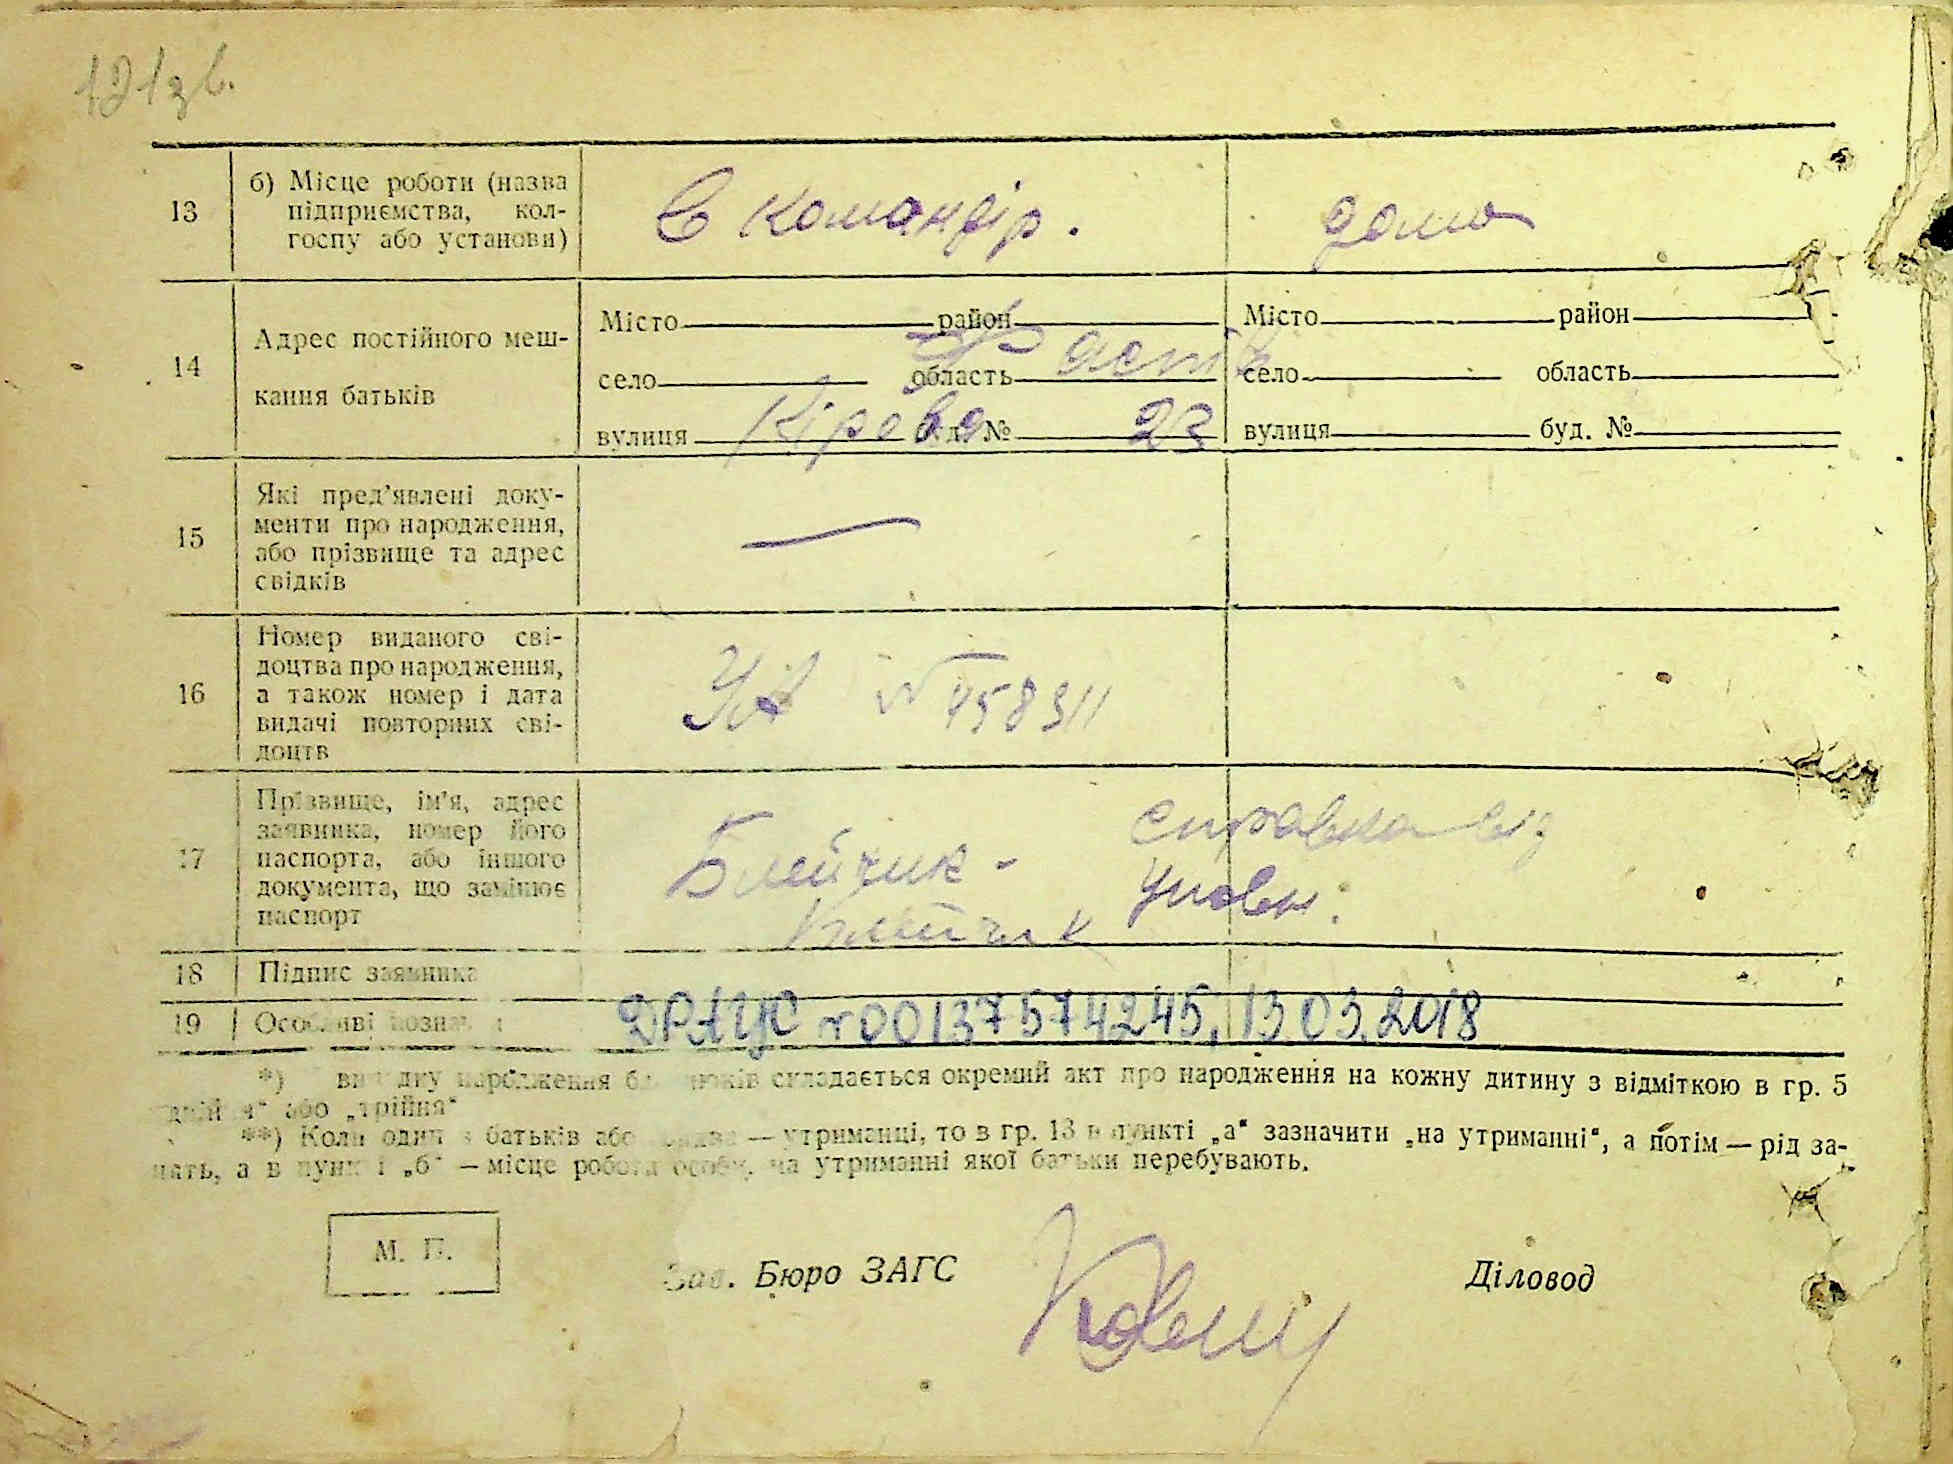 121зв.
13
б) Місце роботи (назва
підприємства, кол-
госпу або установи)
В командір.
дома
14
Адрес постійного меш-
кання батьків
Місто район
село область
Фастів
вулиця буд. №
Кірова 23
Місто район
село область
вулиця буд. №
15
Які пред’явлені доку-
менти про народження,
або прізвище та адрес
свідків
—
16
Номер виданого сві-
доцтва про народження,
а також номер і дата
видачі повторних сві-
доцтв
УА № 458311
17
Прізвище, ім’я, адрес
заявника, номер його
паспорта, або іншого
документа, що замінює
паспорт
Блейчик -
справка від
18
Підпис заявника
19
Особливі познач
ДРАЦС №00137574245, 13.03.2018
*) випадку народження близнюків складається окремий акт про народження на кожну дитину з відміткою в гр. 5
„двійня“ або „трійня“
**) Коли один з батьків або обидва — утриманці, то в гр. 13 в пункті „а“ зазначити „на утриманні“, а потім — рід за-
нять, а в пункті „б“ — місце роботи особи, на утриманні якої батьки перебувають.
М. П.
Зав. Бюро ЗАГС
Діловод